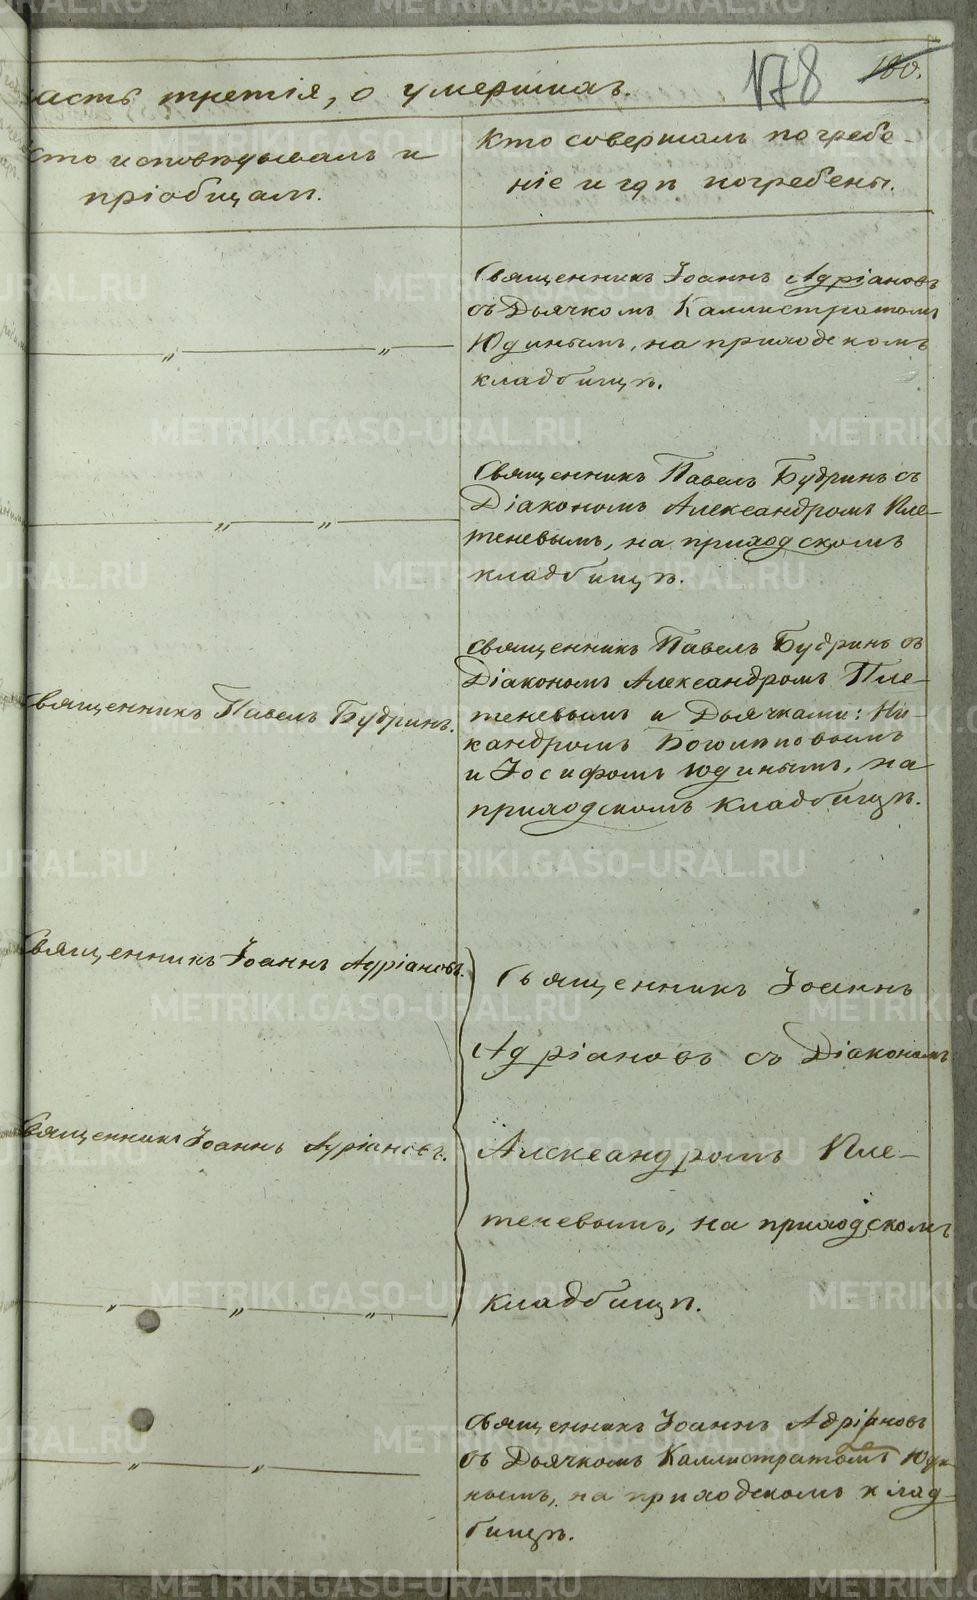 178
180.
асть третія, о умершихъ.
то исповѣдывалъ и
пріобщалъ.
Кто совершалъ погребе-
ніе и гдѣ погребены.
Священникъ Іоаннъ Адріановъ
съ Дьячкомъ Каллистратомъ
Юдинымъ, на приходскомъ
кладбищѣ.
Священникъ Павелъ Будринъ съ
Діакономъ Александромъ Пле-
теневымъ, на приходскомъ
кладбищѣ.
Священникъ Павелъ Будринъ.
Священникъ Павелъ Будринъ съ
Діакономъ Александромъ Пле-
теневымъ и Дьячками: Ни-
кандромъ Боголѣповымъ
и Іосифомъ Юдинымъ, на
приходскомъ кладбищѣ.
Священникъ Іоаннъ Адріановъ.
Священникъ Іоаннъ Адріановъ.
Священникъ Іоаннъ
Адріановъ съ Діакономъ
Александромъ Пле-
теневымъ, на приходскомъ
кладбищѣ.
Священникъ Іоаннъ Адріановъ
съ Дьячкомъ Каллистратомъ Юди-
нымъ, на приходскомъ клад-
бищѣ.
METRIKI.GASO-URAL.RU